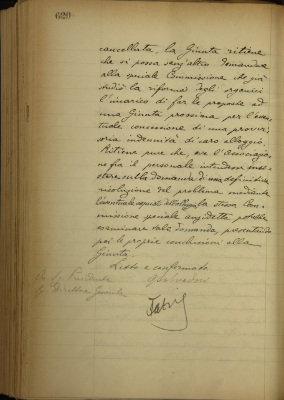 629
cancellata, la Giunta ritiene
che si possa senz'altro demandare
alla speciale Commissione che già
studiò la riforma degli organici
l'incarico di far le proposte ad
una Giunta prossima per l'even-
tuale concessione di una provvi-
soria indennità di caro alloggio.
Ritiene pure che, ove l'Associazio-
ne fra il personale intendesse insi-
stere sulla domanda di una definitiva
risoluzione del problema mediante
l'eventuale acquisto dell'alloggio la stessa Com-
missione speciale anzidetta potrebbe
esaminare tale domanda, presentando
poi le proprie conclusioni alla
Giunta.
Letto e confermato
Il Presidente
Il Direttore Generale